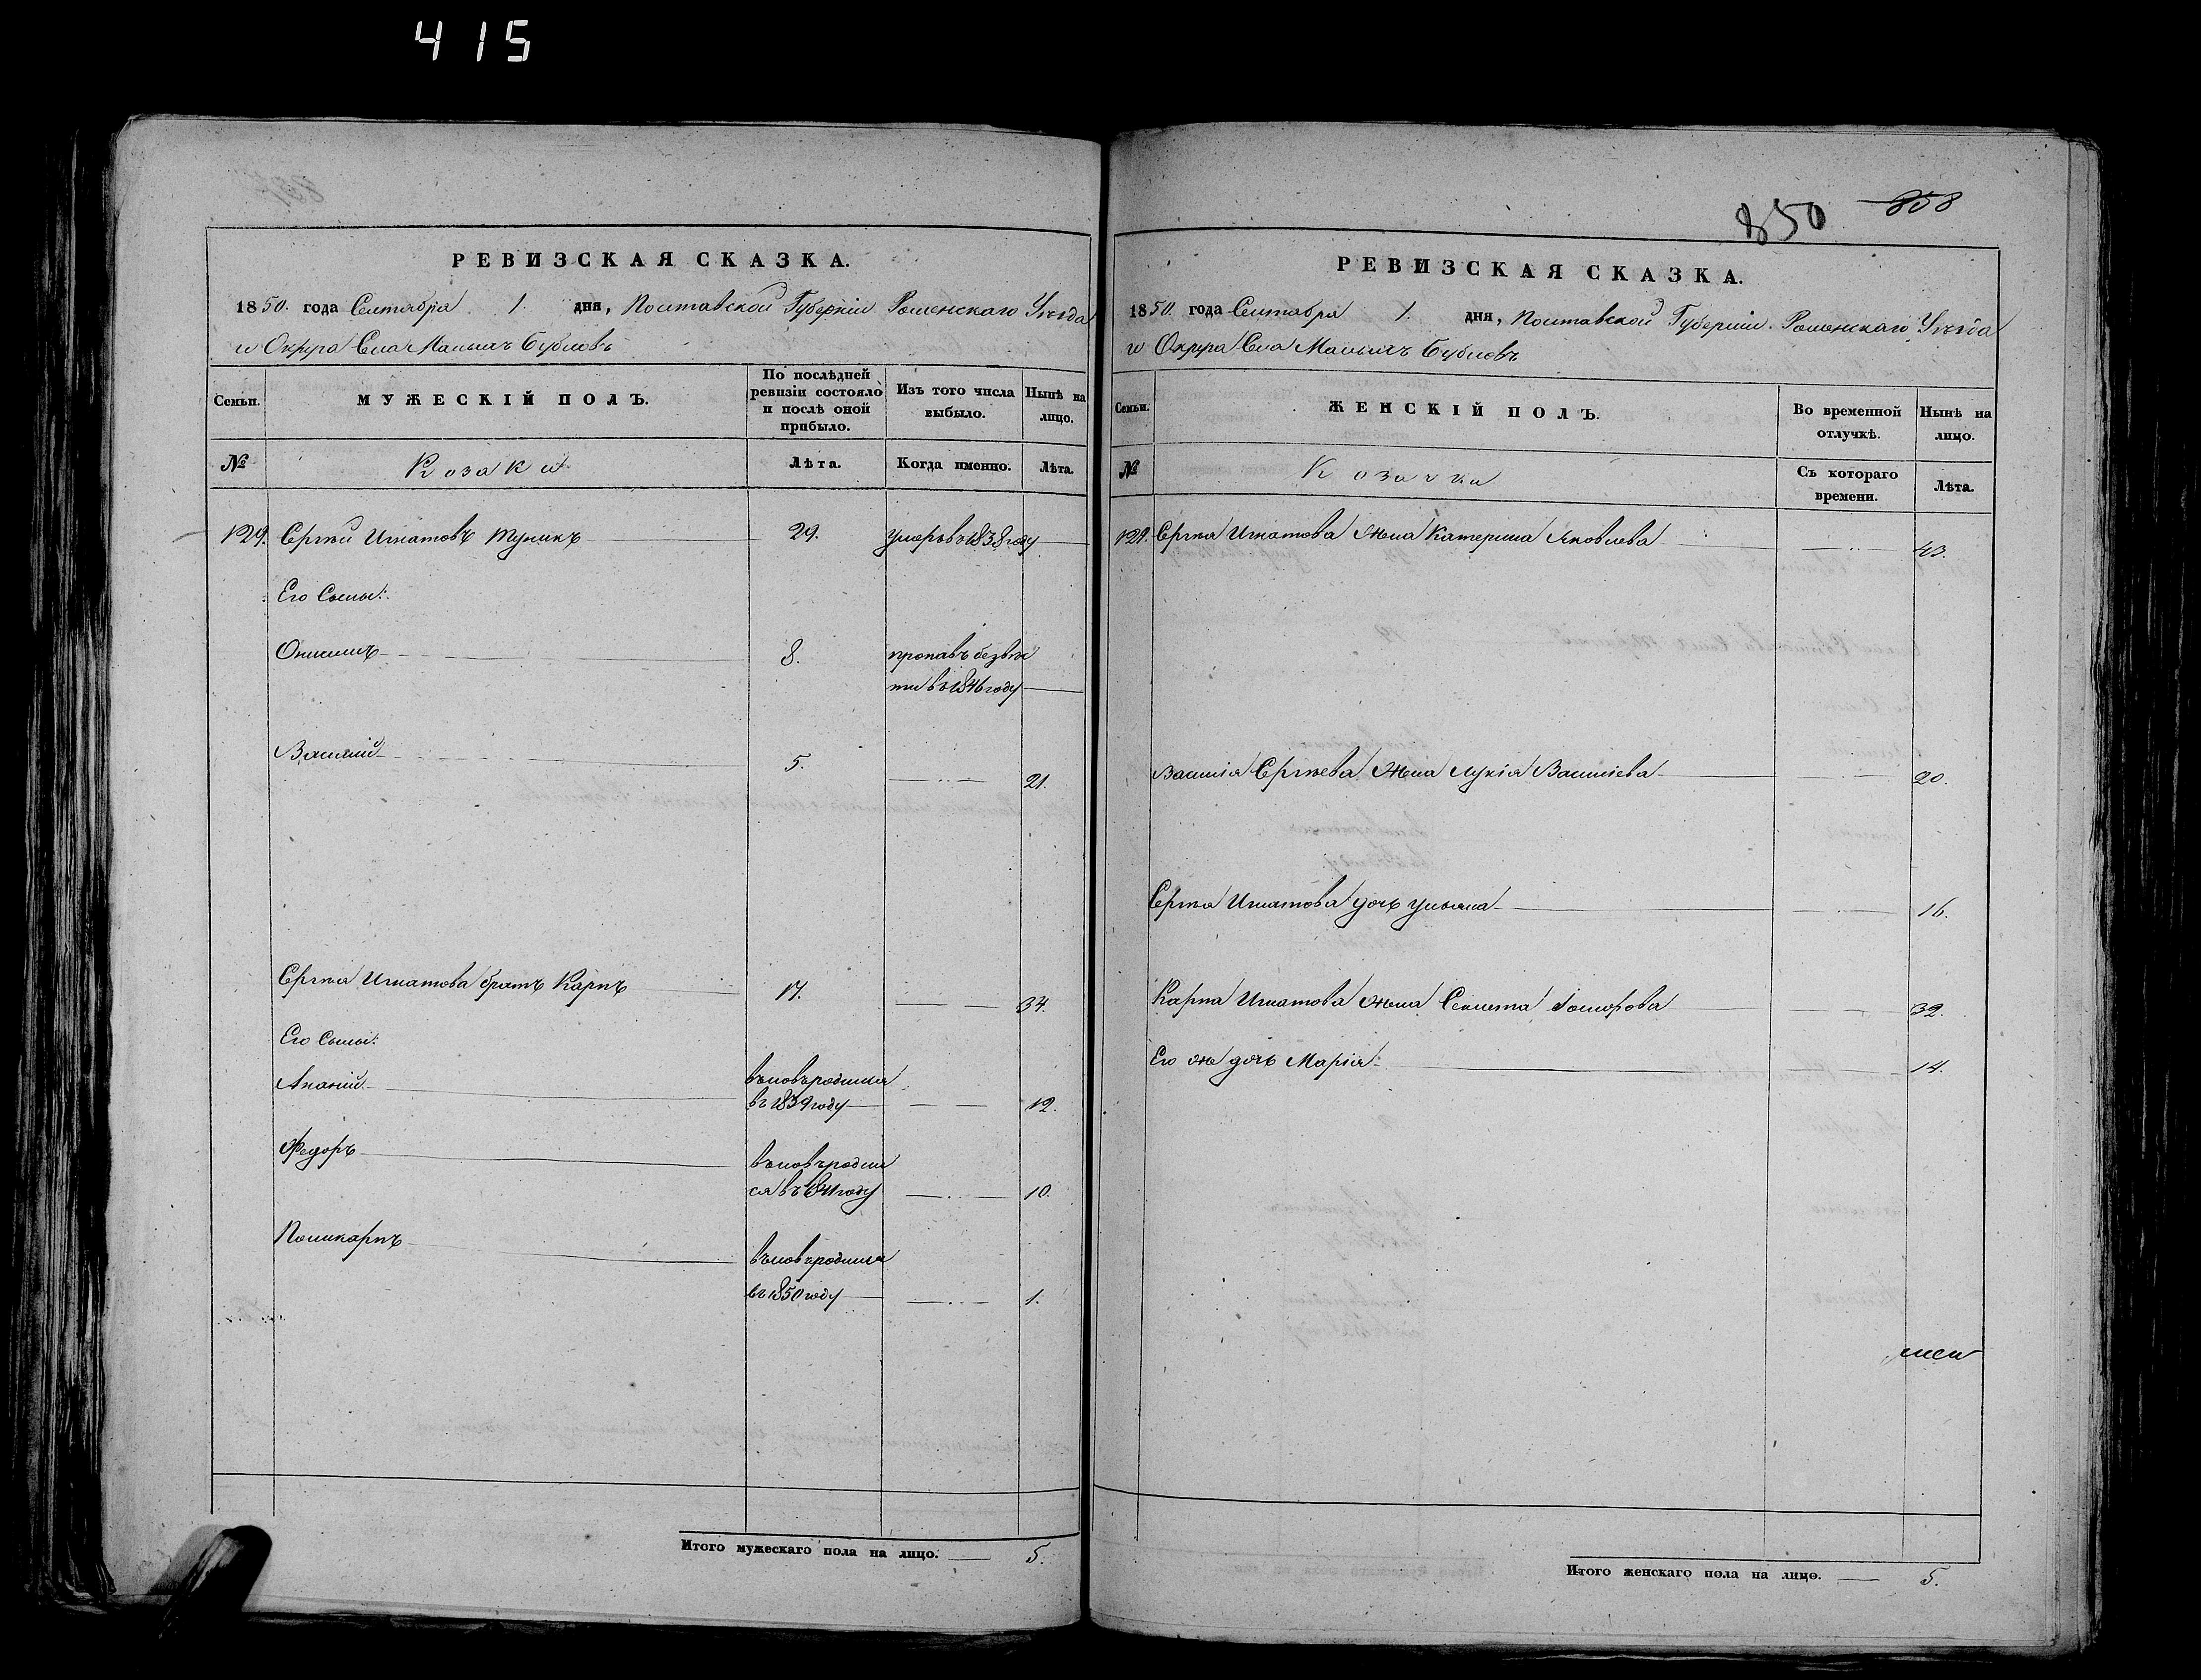 415
РЕВИЗСКАЯ СКАЗКА.
1850. года Сентября 1. дня, Полтавской Губерніи Роменскаго Уѣзда
и Округа Села Малыхъ Бубновъ
Семьи.
МУЖЕСКІЙ ПОЛЪ.
По послѣдней ревизіи состояло и послѣ оной прибыло.
Изъ того числа выбыло.
Нынѣ на лицо.
№
Козаки
Лѣта.
Когда именно.
Лѣта.
129. Сергѣй Игнатовъ 29. умеръ въ 1838 году
Его Сыны:
Онисимъ 8. пропавъ безвѣс
ти въ 1846 году
Василій 5. 21.
Сергѣя Игнатова братъ Карпъ 17. 34.
Его Сыны:
Ананій вновь родился
въ 1839 году 12.
Федоръ вновь родил
ся въ 1841 году 10.
Поликарпъ вновь родился
въ 1850 году 1.
Итого мужескаго пола на лицо. 5.
850 858
РЕВИЗСКАЯ СКАЗКА.
1850. года Сентября 1. дня, Полтавской Губерніи Роменскаго Уѣзда
и Округа Села Малыхъ Бубновъ
Семьи.
ЖЕНСКІЙ ПОЛЪ.
Во временной отлучкѣ.
Нынѣ на лицо.
№
Козачки
Съ котораго времени.
Лѣта.
129. Сергѣя Игнатова Жена Катерина Яковлева 43.
Василія Сергѣева Жена Лукія Василіева 20.
Сергѣя Игнатова дочь Ульяна 16.
Карпа Игнатова жена Секлета 32.
Его же дочь Марія 14.
Итого женскаго пола на лицо. 5.